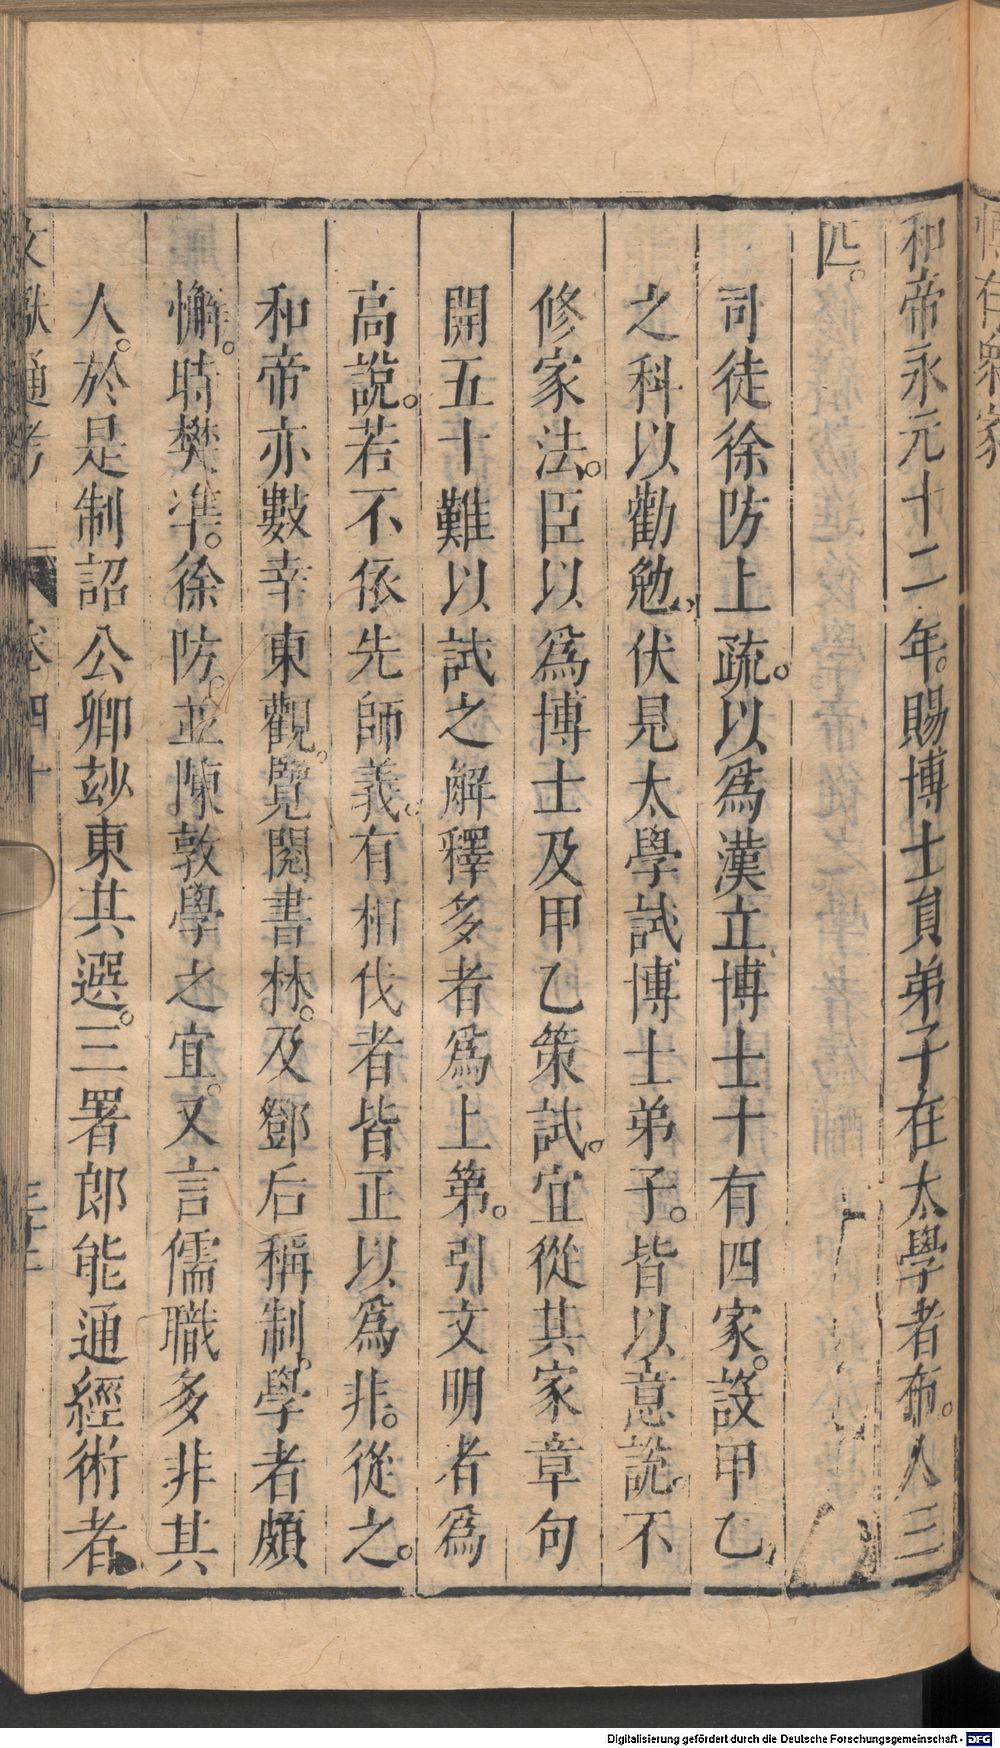 和帝永元十二年。賜博士員弟子在太學者布。人三
匹。
司徒徐防上疏。以爲漢立博士十有四家。設甲乙
之科以勸勉。伏見太學試博士弟子。皆以意說。不
修家法。臣以爲博士及甲乙策試。宜從其家章句
開五十難以試之解釋多者爲上第。引文明者爲
高說。若不依先師義。有相伐者皆正以爲非。從之。
和帝亦數幸東觀。覽閱書林。及鄧后稱制。學者頗
懈。時樊準。徐防。並陳敦學之宜。又言儒職多非其
人。於是制詔公卿玅東其選。三署郎能通經術者
文獻通考 卷四十
Digitalisierung gefördert durch die Deutsche Forschungsgemeinschaft - DFG